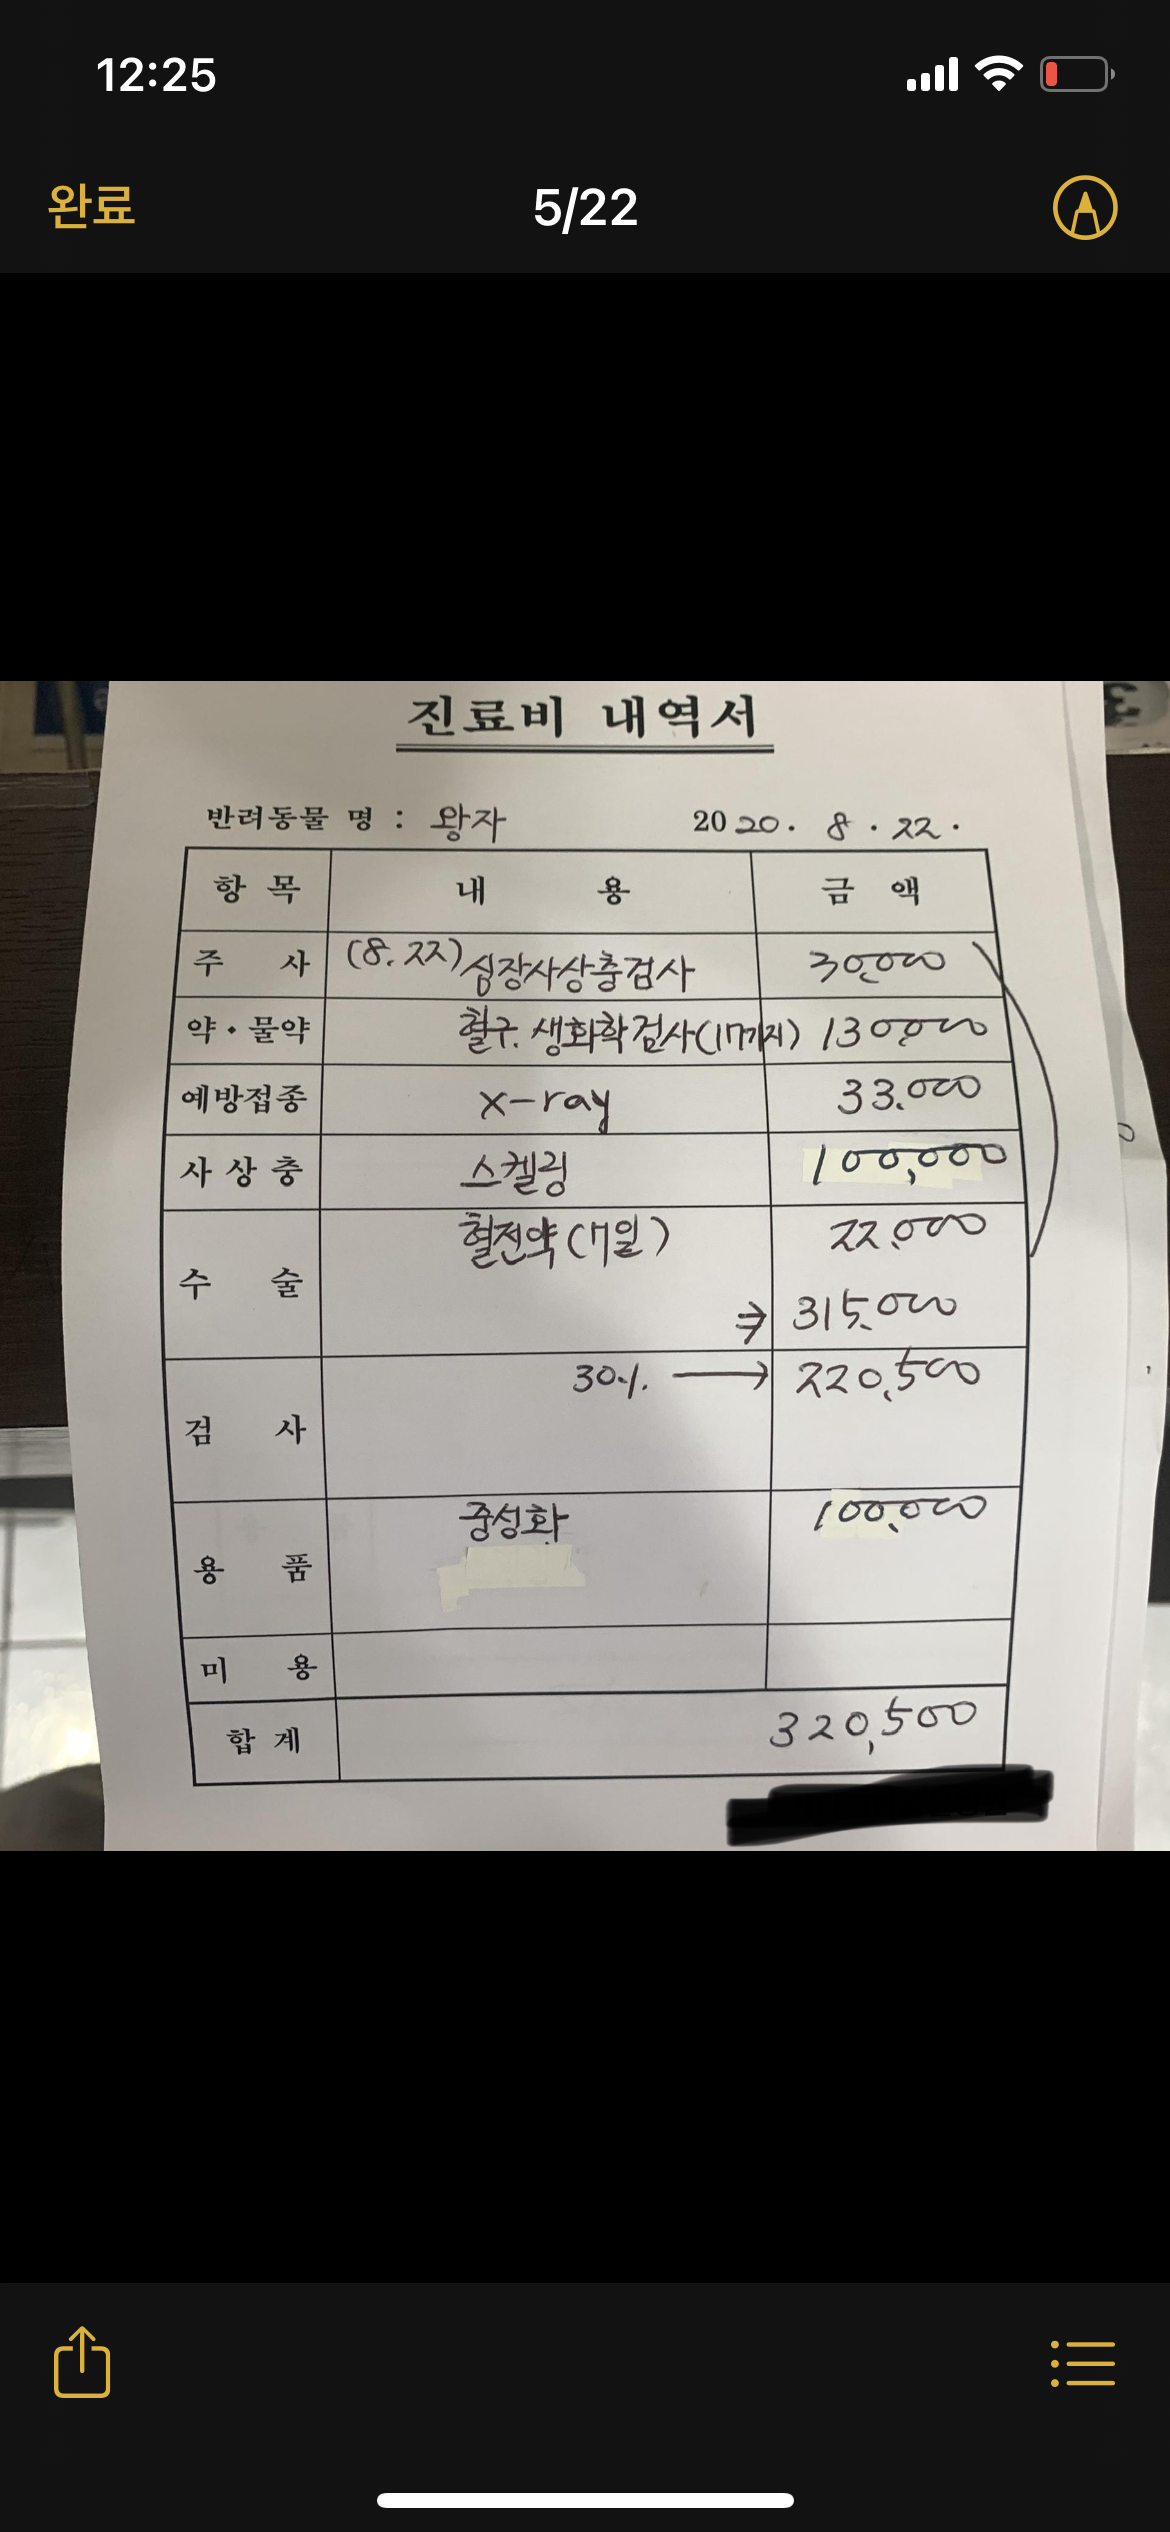 12:25
완료 5/22
진료비 내역서
반려동물 명 : 왕자 2020. 8. 22.
항 목 내 용 금 액
주 사 (8. 22) 심장사상충검사 30,000
약·물약 혈구. 생화학검사(17가지) 130,000
예방접종 x-ray 33.000
사상충 스켈링 100,000
수 술 혈전약(7일) 22.000
⇒ 315,000
검 사 30% → 220,500
용 품 중성화 100,000
미 용
합 계 320,500